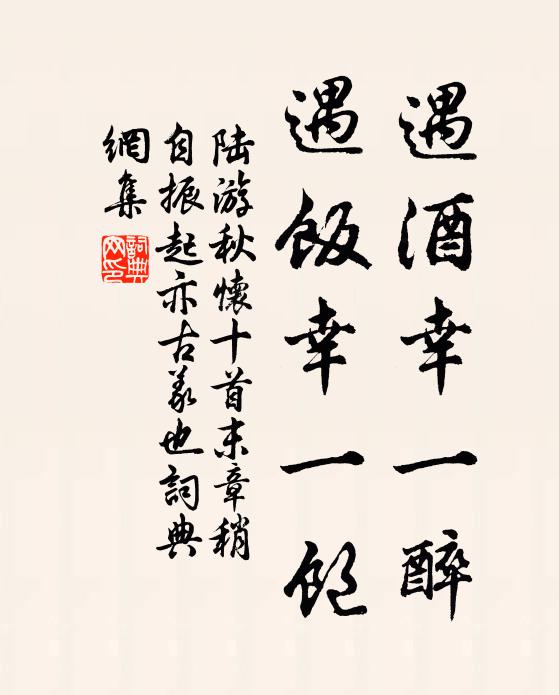 遇酒幸一醉
遇飯幸一飽
陆游秋懷十首末章稍
自振起亦古義也詞典
網集
詞典
网印